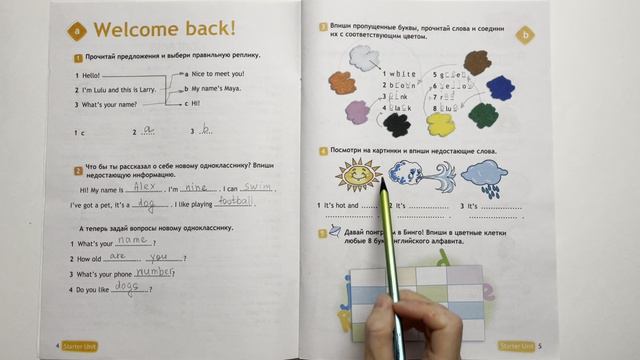 a Welcome back!
1 Прочитай предложения и выбери правильную реплику.
1 Hello!
2 I'm Lulu and this is Larry.
3 What's your name?
a Nice to meet you!
b My name's Maya.
c Hi!
1 c 2 a 3 b
2 Что бы ты рассказал о себе новому однокласснику? Впиши
недостающую информацию.
Hi! My name is Alex. I'm nine. I can swim.
I've got a pet, it's a dog. I like playing football.
А теперь задай вопросы новому однокласснику.
1 What's your name?
2 How old are you?
3 What's your phone number?
4 Do you like dogs?
4 Starter Unit
3 Впиши пропущенные буквы, прочитай слова и соедини
их с соответствующим цветом.
b
1 white
2 brown
3 pink
4 black
5 g
6
7 r
8 blu
4 Посмотри на картинки и впиши недостающие слова.
1 It's hot and
2 It's
3 It's
5 Давай поиграем в Бинго! Впиши в цветные клетки
любые 8 букв английского алфавита.
Starter Unit 5